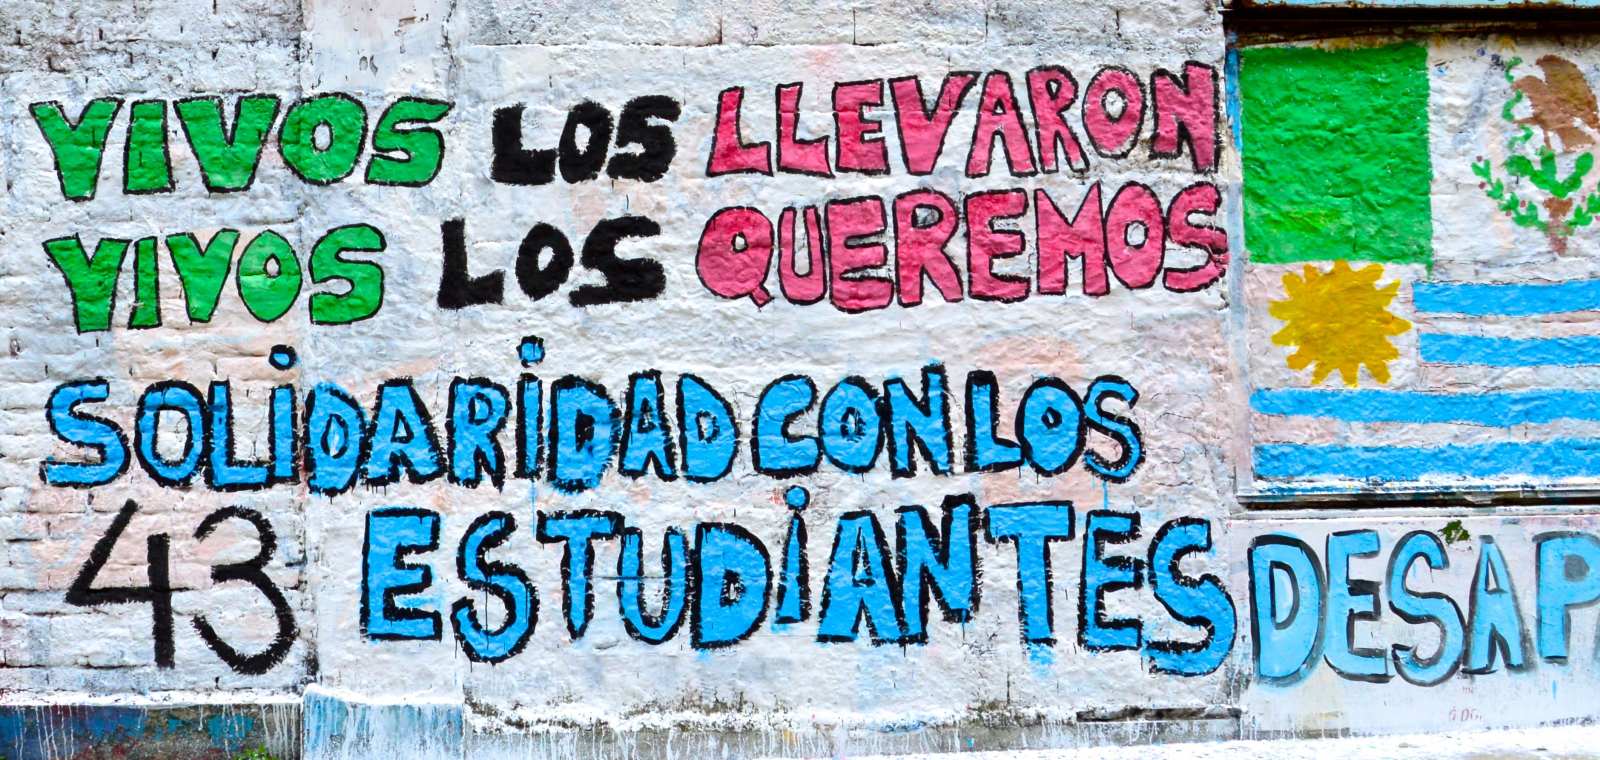 VIVOS LOS LLEVARON
VIVOS LOS QUEREMOS
SOLiDARiDAD CON LOS
43 ESTUDiANTES DESAPA